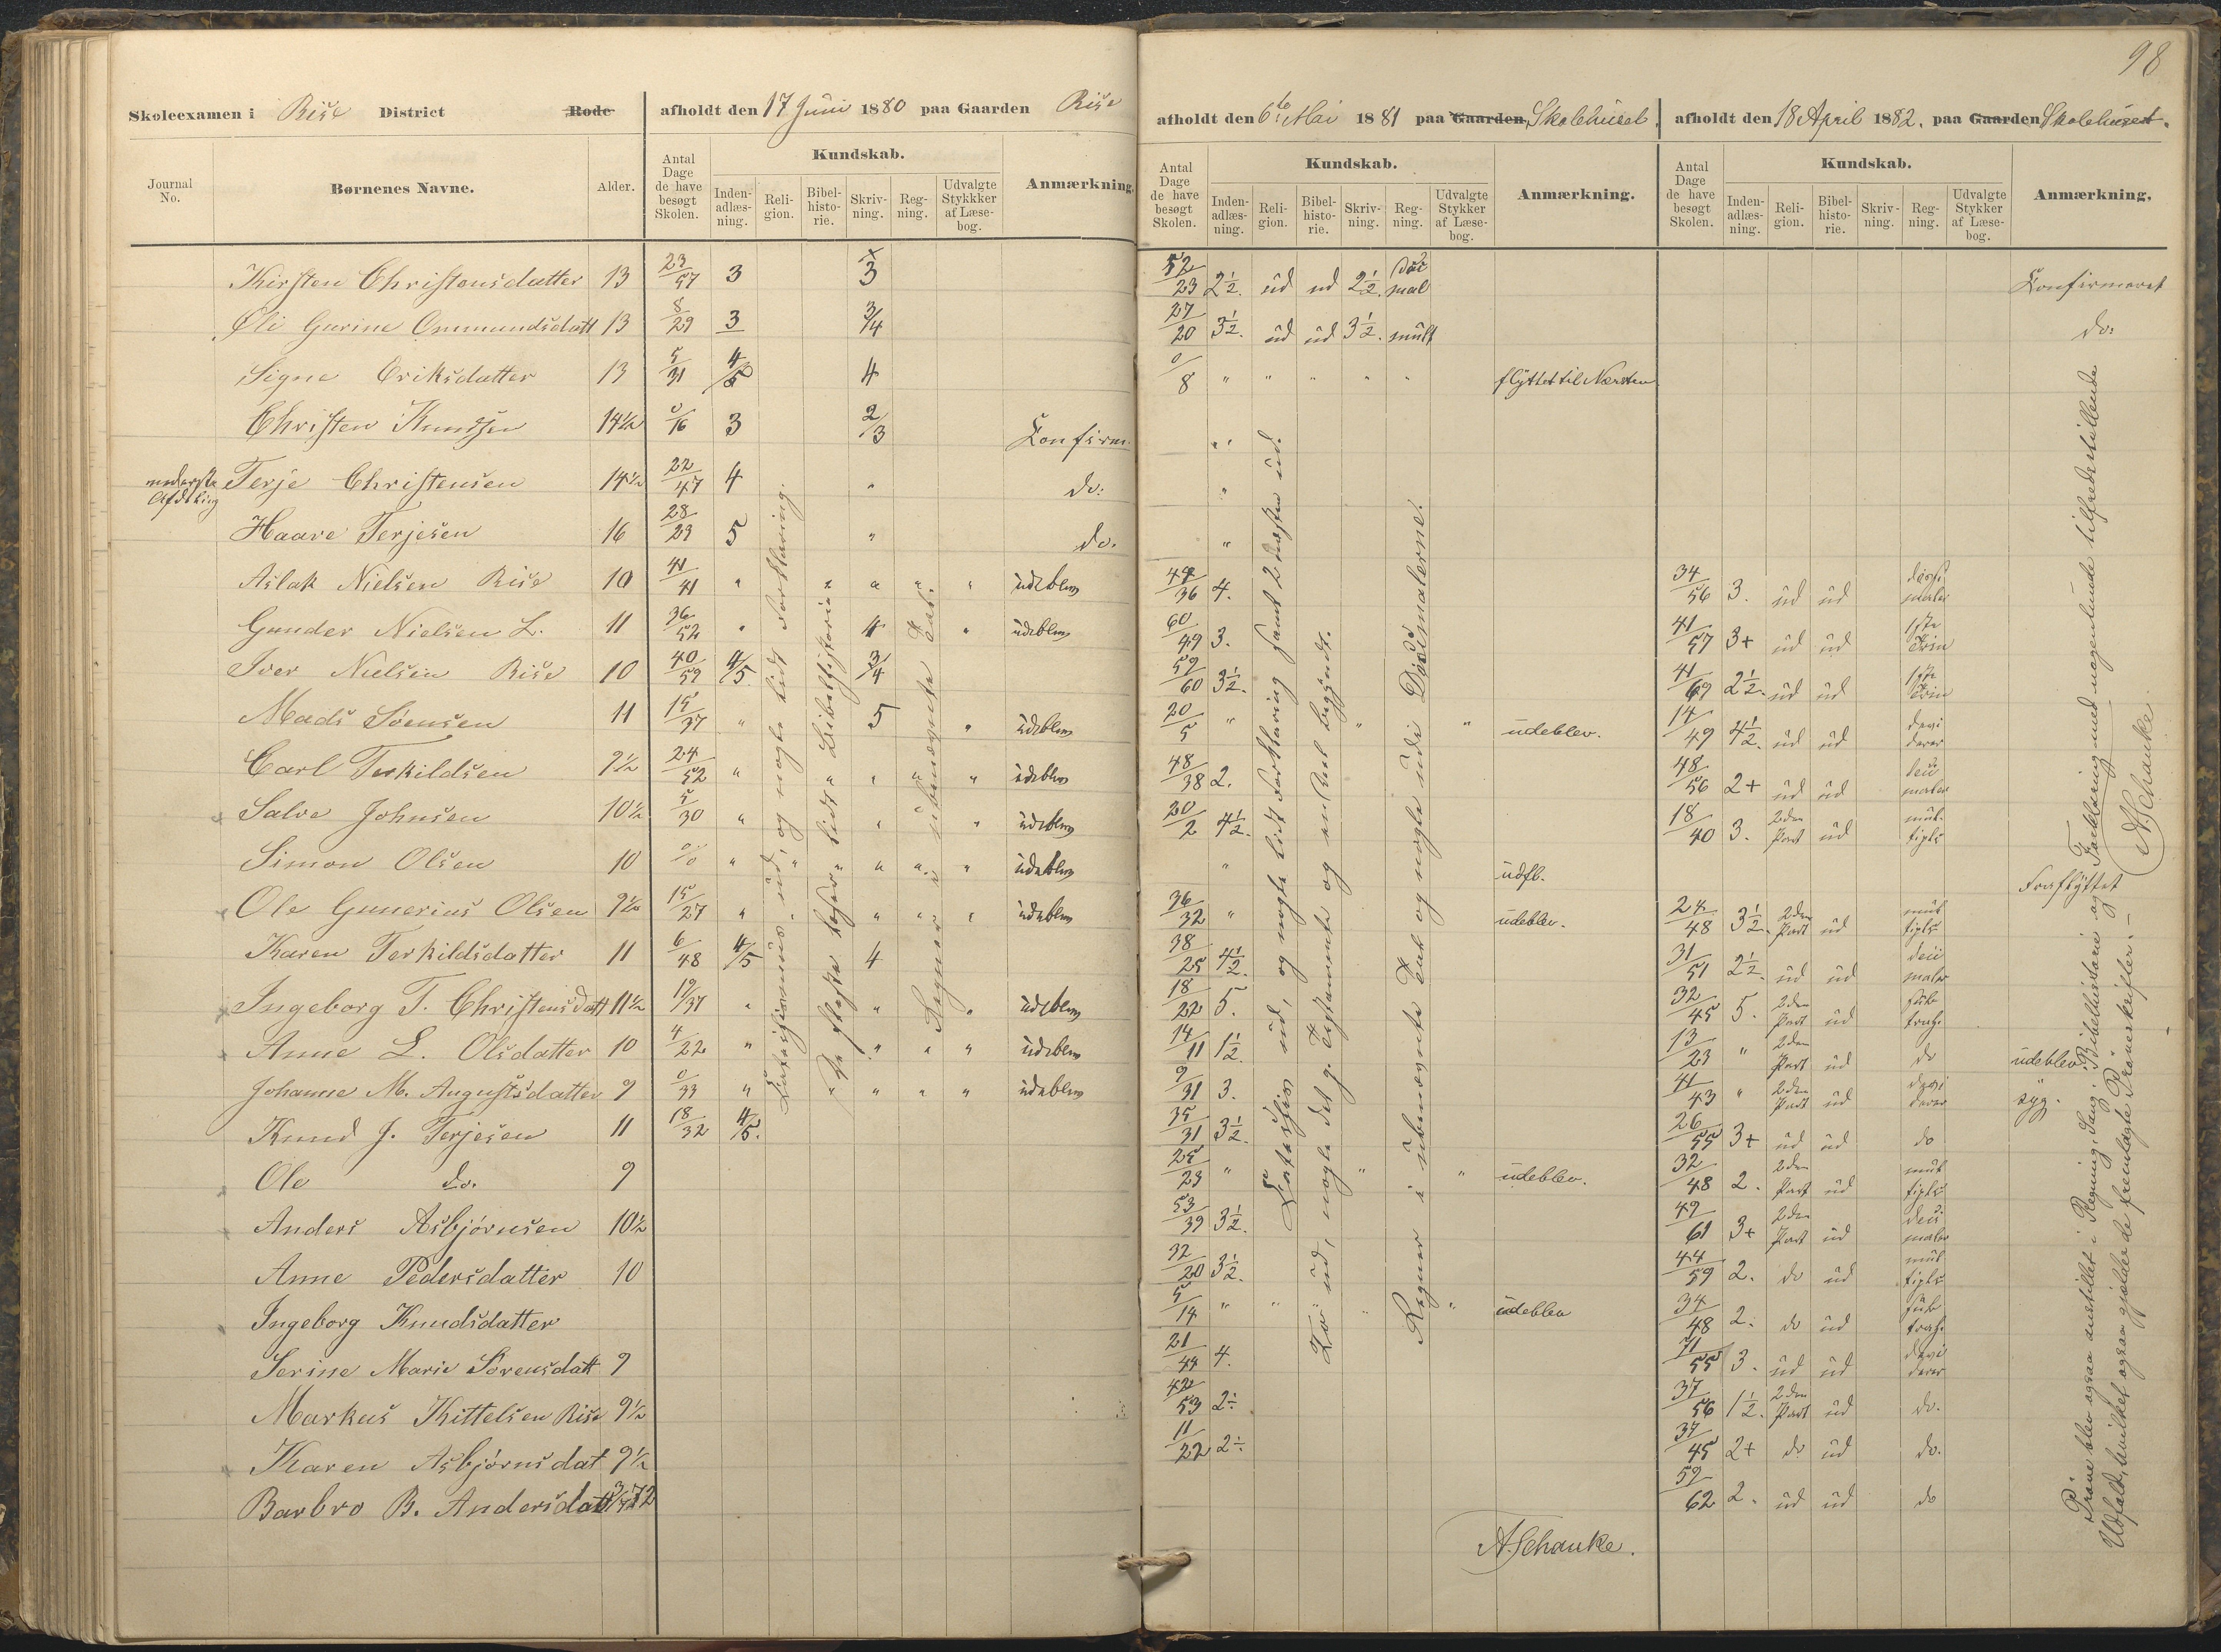 98
Skoleexamen i Rise District Rode afholdt den 17 Juni 1880 paa Gaarden Rise
afholdt den 6te Mai 1881 paa Gaarden Skolehuset. afholdt den 18 April 1882. paa Gaarden Skolehuset.
Journal No. Børnenes Navne. Alder. Antal Dage de have besøgt Skolen. Kundskab. Inden- adlæs- ning. Reli- gion. Bibel- histo- rie. Skriv- ning. Reg- ning. Udvalgte Stykkker af Læse- bog. Anmærkning.
Antal Dage de have besøgt Skolen. Kundskab. Inden- adlæs- ning. Reli- gion. Bibel- histo- rie. Skriv- ning. Reg- ning. Udvalgte Stykker af Læse- bog. Anmærkning.
Antal Dage de have besøgt Skolen. Kundskab. Inden- adlæs- ning. Reli- gion. Bibel- histo- rie. Skriv- ning. Reg- ning. Udvalgte Stykker af Læse- bog. Anmærkning.
Kirsten Christensdatter 13 23/57 3 3 52/23 2½. ud ud 2½. mal Konfirmeret
Oli Gurine Ommundsdatt 13 8/29 3 3/4 27/20 3½. ud ud 3½. mult do:
Signe Eriksdatter 13 5/31 4/5 4 0/8 " " " " " flyttet til Næsten
Christen Knudsen 14½ 0/16 3 2/3 Konfirm. "
nederste Afdeling Terje Christensen 14½ 22/47 4 " do: "
Haave Terjesen 16 28/23 5 " do. "
Aslak Nielsen Rise 10 41/41 " " " " " udeblev 44/36 4. 34/56 3. ud ud
Gunder Nielsen L. 11 36/52 " 4 " udeblev 60/49 3. 41/57 3+ ud ud
Iver Nielsen Rise 10 40/59 4/5 3/4 59/60 3½. 41/69 2½. ud ud
Mads Sørensen 11 15/37 " 5 " udeblev 20/5 " " " udeblev. 14/49 4½. ud ud devi derer
Carl Terkildsen 9½ 24/52 " " " " " udeblev 48/38 2. 48/56 2+ ud ud
Salve Johnsen 10½ 5/30 " " " udeblev 20/2 4½. 18/40 3. 2den Part ud mul- tipls
Simon Olsen 10 0/0 " " " " " udeblev " udfl. Fraflyttet
Ole Gunerius Olsen 9½ 15/27 " " " " udeblev 36/32 " udeblev. 24/48 3½. 2den Part ud mul tipls
Karen Terkildsdatter 11 6/48 4/5 4 38/25 4½. 31/51 2½. ud ud
Ingeborg T. Christensdatt 11½ 19/37 " " " udeblev 18/22 5. 32/45 5. 2den Part ud sub trah.
Anne L. Olsdatter 10 4/22 " " " " udeblev 14/11 1½. 13/23 " 2den Part ud do udeblev
Johanne M. Augustsdatter 9 0/33 " " " " " udeblev 9/31 3. 41/43 " 2den Part ud devi derer syg.
Knud J. Terjesen 11 18/32 4/5. 35/31 3½. 26/55 3+ ud ud do
Ole do. 9 25/23 " " " udeblev. 32/48 2. 2den Part ud mul tipls
Anders Asbjørnsen 10½ 53/39 3½. 49/61 3+ 2den Part ud
Anne Pedersdatter 10 32/20 3½. 44/59 2. do ud mul tipls
Ingeborg Knudsdatter 5/14 " " " " udeblev 34/48 2. do ud sub trah.
Serine Marie Sørensdatt 9 21/44 4. 41/55 3. ud ud devi derer
Markus Kittelsen Rise 9½ 42/53 2÷ 37/56 1½. 2den Part ud do.
Karen Asbjørnsdat 9½ 11/22 2÷ 37/45 2+ do ud do.
Barbro B. Andersdatt 59/62 2. ud ud do
Katesismus ud, og nogle lidt Forklaring.
De fleste læser lidt Bibelhistorie
Regner i ubenævnte Tal.
Katesism ud, og nogle lidt Forklaring samt 2 næsten ud.
To ud, nogle det g. Testamente og en Del begyndt.
Regner i ubenævnte Tal og nogle indi Desimalerne.
A. Schanke.
Prøve blev ogsaa anstillet i Regning, Sang, Bibelhistorie og Forklaring med nogenlunde tilfredsstillende
Udfald, hvilket ogsaa gjælder de fremlagte Prøveskrifter. –
A. Schanke